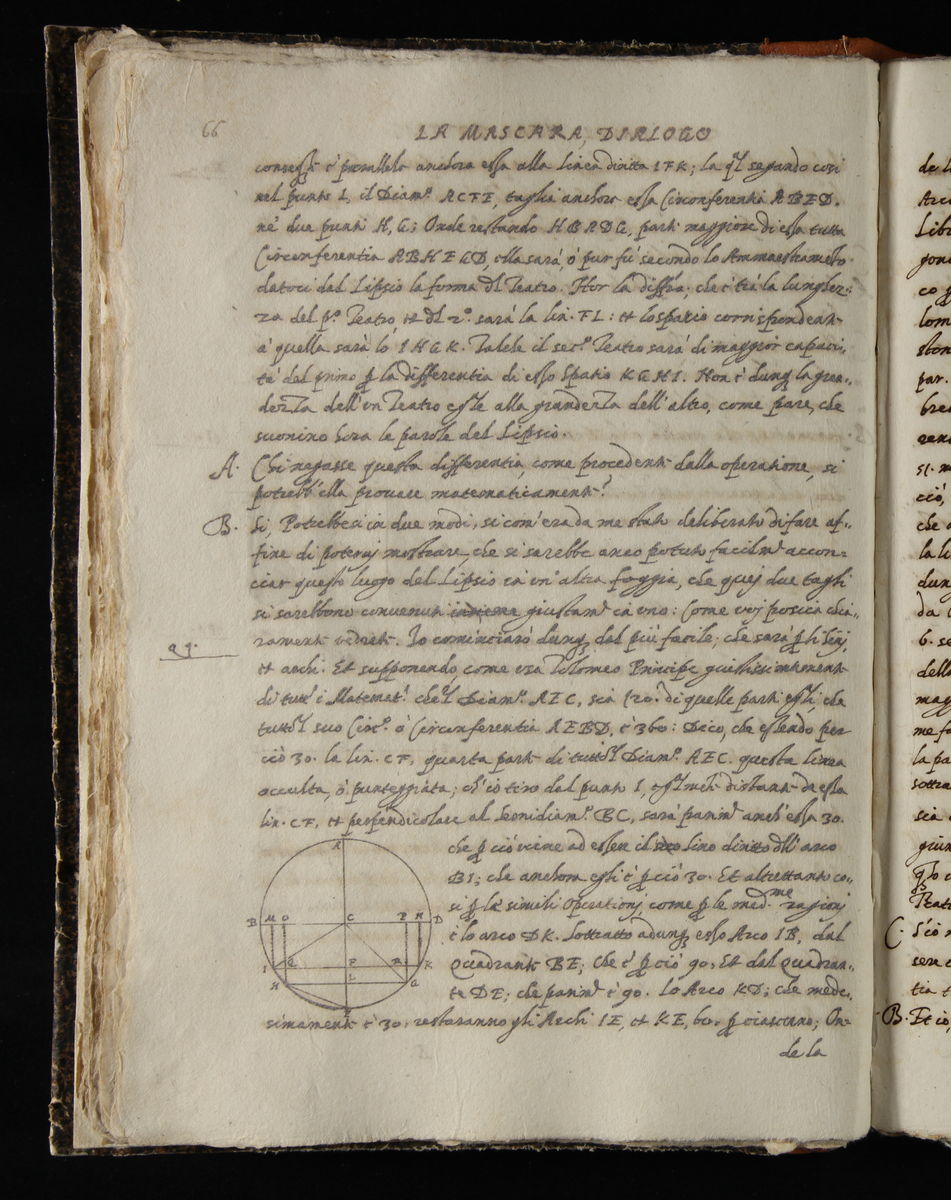 66
LA MASCARA, DIALOGO
è parallela anchora essa alla linea diritta IFK; la ql segando cosi
nel punto L, il Diam.º ACFE, taglia anchora essa Circonferentia ABED.
nè due punti H, G; Onde restando HBADG, parte maggiore di essa tutta
Circonferentia ABHEGD, ella sarà, ò pur fù secondo lo Ammaestramēto
datoci dal Lipsio la forma dl Teatro. Hor la diffrã, che è trà la lunghez-
za del p.º Teatro, et dl 2.º sarà la lin. FL: et lo spatio corrispondente
à quella sarà lo IHGK. Talche il sec.º Teatro sarà di maggior capaci-
tà del primo p la differentia di esso Spatio KGHI. Non è dunq la gran-
dezza dell'un Teatro alla grandezza dell'altro, come pare, che
suonino hora le parole del Lipsio.
A. Chi negasse questa differentia come procedente dalla operatione, si
potrebb'ella provare matematicamente?
B. Si, Potrebbesi in due modi, si com'era da me stato deliberato di fare af-
fine di potervj mostrare, che si sarebbe anco potuto facilmte accon-
ciar questo luogo del Lipsio in un'altra foggia, che quej due tagli
si sarebbono convenuti insieme giustamte in uno: Come voj poscia chia-
ramente vedrete. Io cominciarò dunq dal più facile, che sarà p li
et archi. Et supponendo, come usa Tolomeo Principe
di tutti i Matemat.i che'l Diam.º AEC, sia 120. di quelle parti che
tutto'l suo Circ.º ò Circonferentia AEBD, è 360: Dico, che essendo per
ciò 30. la lin. CF, quarta parte di tutto'l Diam.º AEC. questa linea
occulta, ò punteggiata; ch'io tiro dal punto I, distante da essa
lin. CF, et perpēdicolare al Semidiam.º BC, sarà parimte anch'essa 30.
che p ciò viene ad essere il Sino diritto dll'arco
BI; che anchora egli è p ciò 30. Et altrettanto co-
si p le simili operationj, come p le medme ragionj
è lo arco DK. Sottratto adunq esso Arco IB, dal
Quadrante BE; che è p ciò 90. Et dal Quadran-
te DE; che parimte è 90. lo Arco KD; che mede-
simamente è 30. restaranno gli Archi IE, et KE, 60. p ciascuno; On-
de la
A
B M O C P N D
I Q F R K
H L G
E